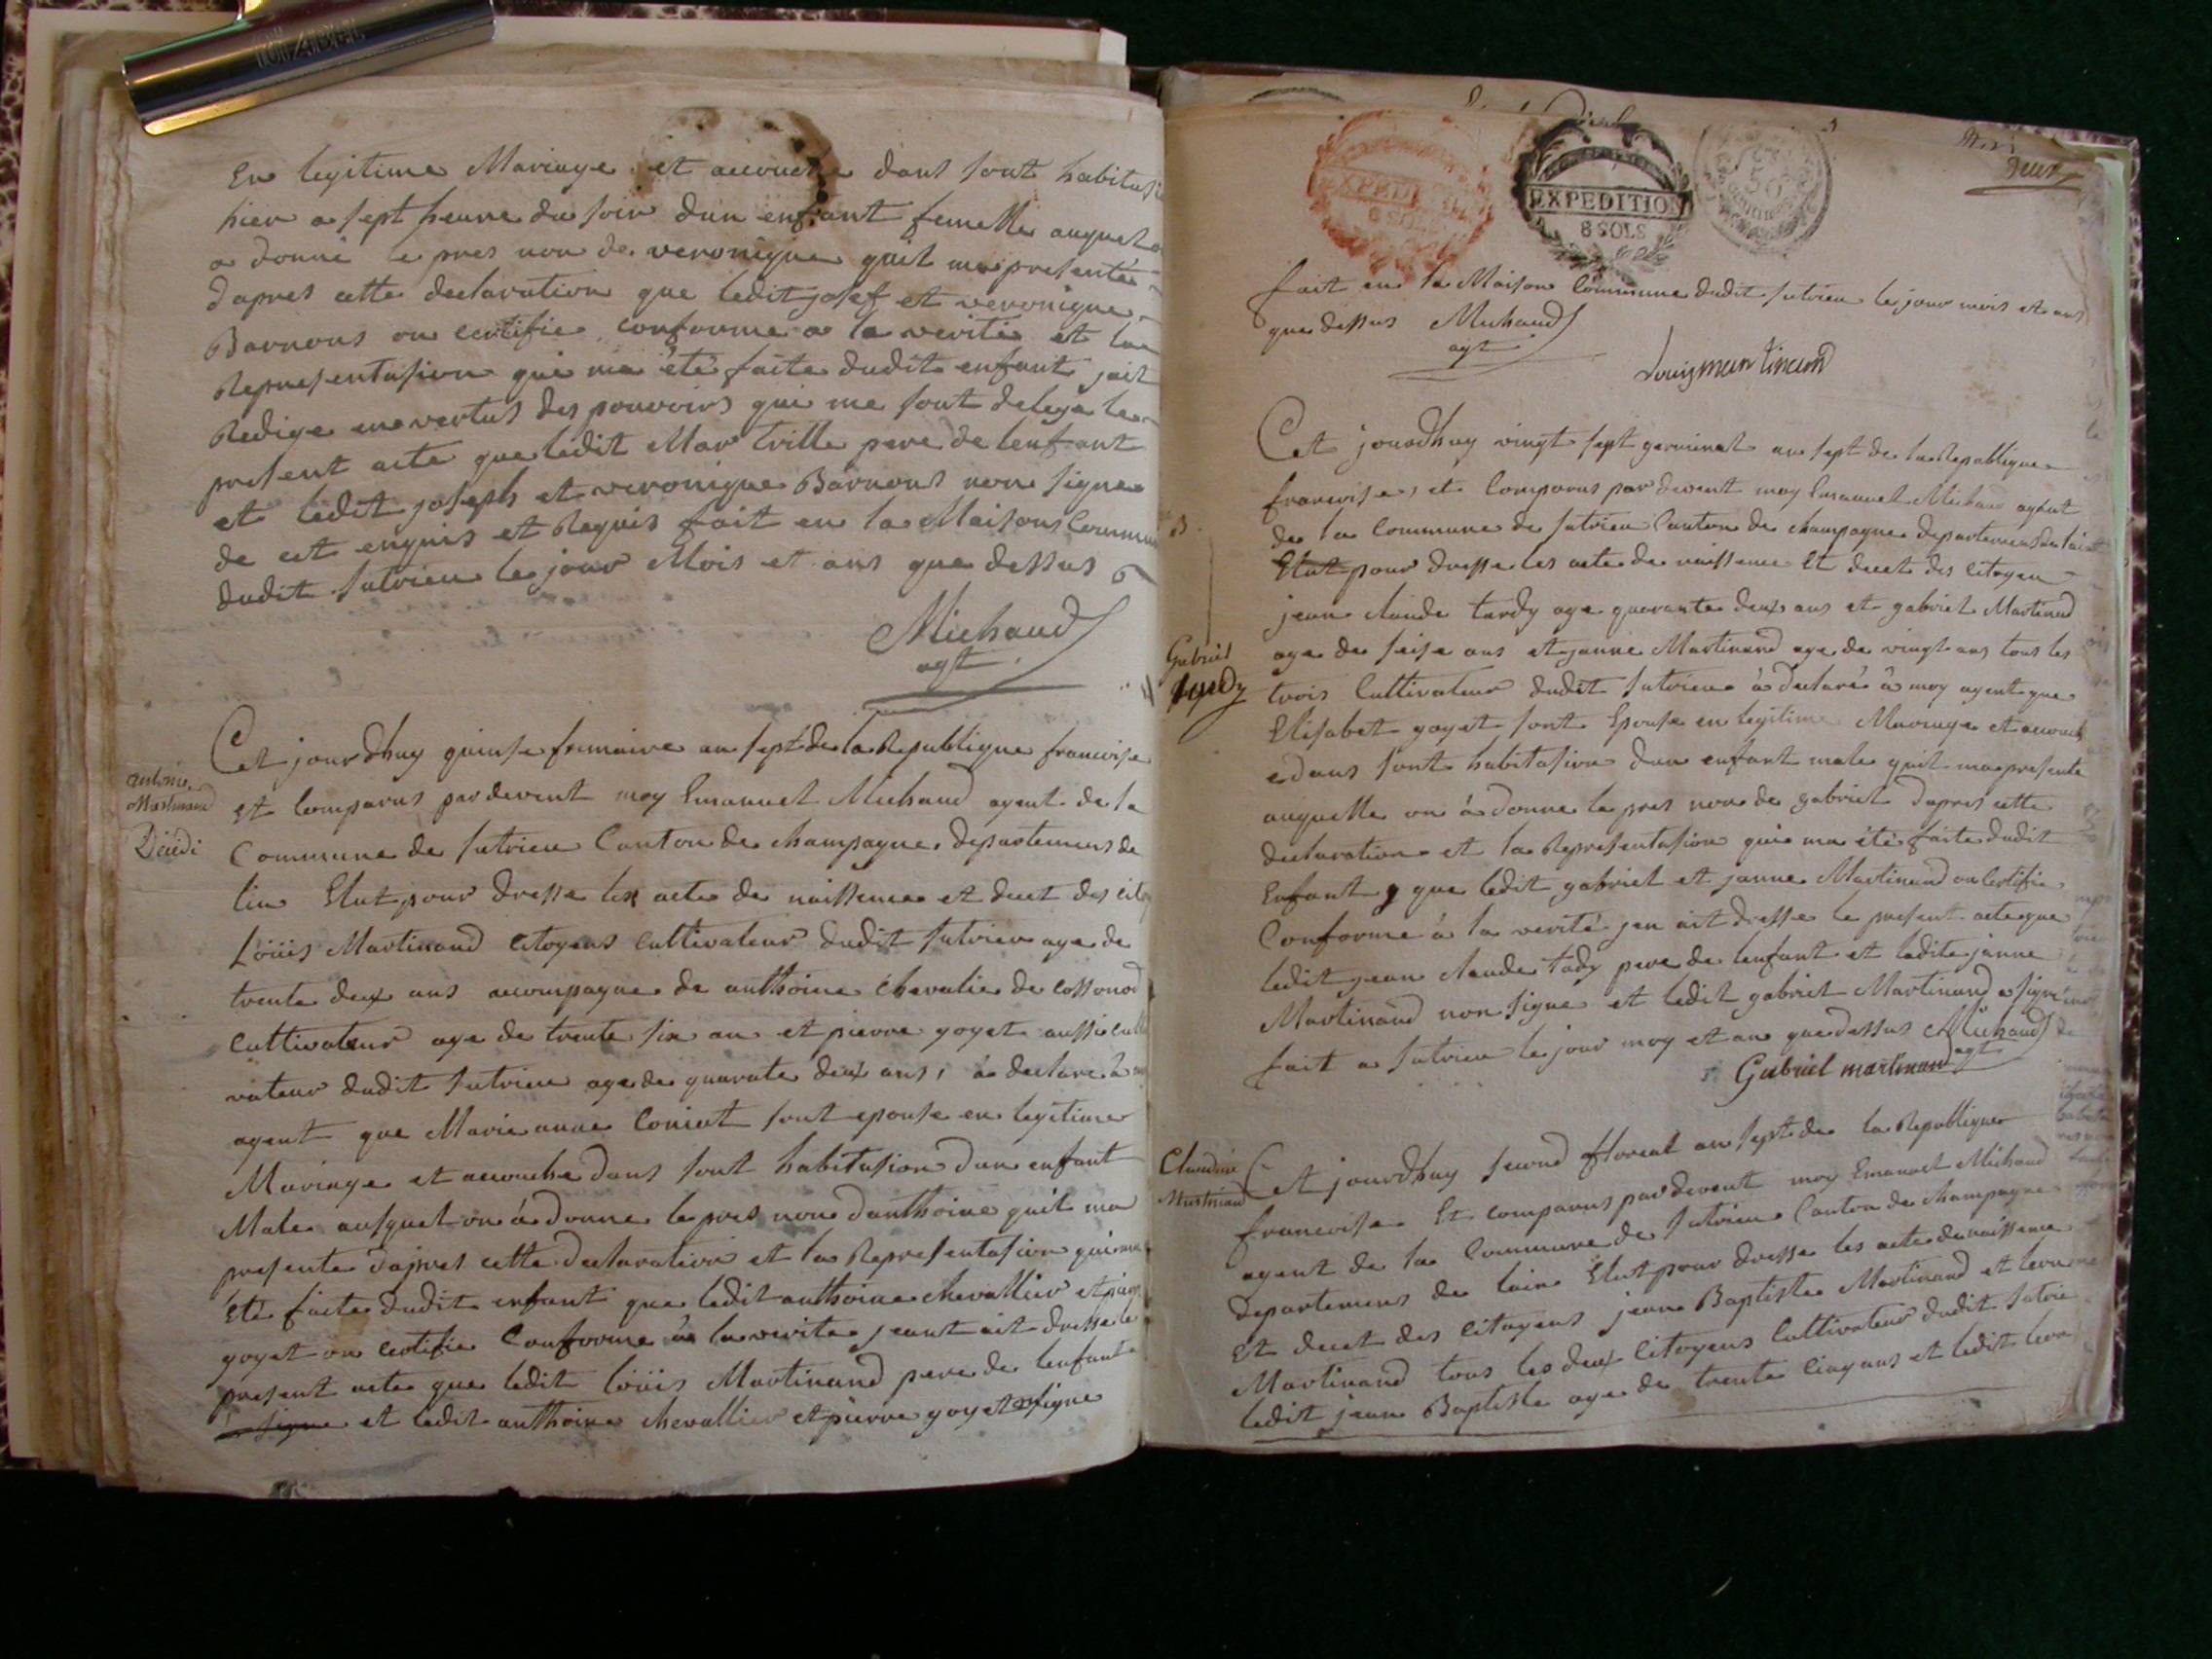 En legitime Mariage et accouche dans sont habitasi
hier a sept heure du soir dun enfant femelle auquel
a donné le pres non de veronique quil ma presenté
dapres cette declaration que ledit josef et veronique
Barnons on certifie conforme a la verité et la
Representasion qui ma été faite dudit enfant jait
Redige en vertus des pouvoirs qui me sont delege le
present acte que ledit Mar trille pere de lenfant
et ledit joseph et veronique Barnons non signe
de cet enquis et Requis fait en la Maisons Commun
dudit sutrieu le jour Mois et ans que dessus
Michaud
agt
antoine
Martinand
Cet jourdhuy quinse frimaire an sept de la Republique francoise
et Comparus par devent moy Emanuel Michaud agent de la
Commune de sutrieu Canton de champagne departemens de
lin Elut pour dresse les acte de naissence et decet des cito
Löüis Martinand citoyens cultivateur dudit sutrieu age de
trente deux ans acompagne de anthoine chevalie de cossonod
Cultivateur age de trente six an et pierre goyet aussi culti
vateur dudit sutrieu age de quarate deux ans, à declaré à
agent que Marie anne Coniat sont epouse en legitime
Mariage et accouche dans sont habitasion dun enfant
Male ausquel on à donne le pres non danthoine quil ma
presente dapres cette declaration et la Representasion qui ma
Eté faite dudit enfant que ledit anthoine chevallier et pierre
goyet on certifie Conforme à la verite jeant ait dresse le
present acte que ledit löüis Martinand pere de lenfant
a signe et ledit anthoine chevallier et pierre goyet on signe
Deux
EXPEDITION
6 SOLS
EXPEDITION
8 SOLS
50
fait en la Maison Commune dudit sutrieu le jour mois et ans
que dessus Michaud
agt
Louis martinand
Cet jourdhuy vingt sept germinal an sept de la Republique
francoise, et Comparus par devent moy Emanuel Michaud agent
de la Commune de sutrieu Canton de champagne departemens de lain
Elut pour dresse les acte de naissence Et decet des citoyen
jean claude tardy age quarante deux ans et gabriel Martinand
Gabriel
tardy
age de seise ans et janne Martinand age de vingt ans tous les
trois Cultivateur dudit sutrieu à declaré à moy agent que
Elisabet goyet sont Epouse en legitime Mariage et accouch
e dans sont habitasion dun enfant male quil ma presente
auquelle on à donne le pres non de gabriel dapres cette
declaration et la Representasion qui ma été faite dudit
Enfant que ledit gabriel et janne Martinand on Certifie
Conforme à la verité jen ait dresse le present acte que
ledit jean claude tady pere de lenfant et ladite janne
Martinand non signe et ledit gabriel Martinand a signé
fait a sutrieu le jour moy et an que dessus Michaud
agt
Gabriel martinand
Claudine
Martinand
Cet jourdhuy second floreal an sept de la Republique
francoise Et comparus par devent moy Emanuel Michaud
agent de la Commune de sutrieu Canton de champagne
departemens de lain Elut pour dresse les acte de naissence
Et decet des citoyens jean Baptiste Martinand et
Martinand tous les deux Citoyens Cultivateur dudit sutrie
ledit jean Baptiste age de trente cinq ans et ledit